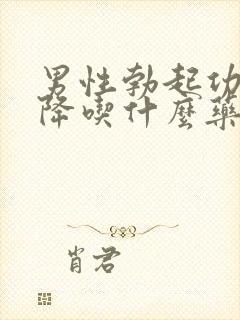 男性勃起功
降喫什麼藥
肖君